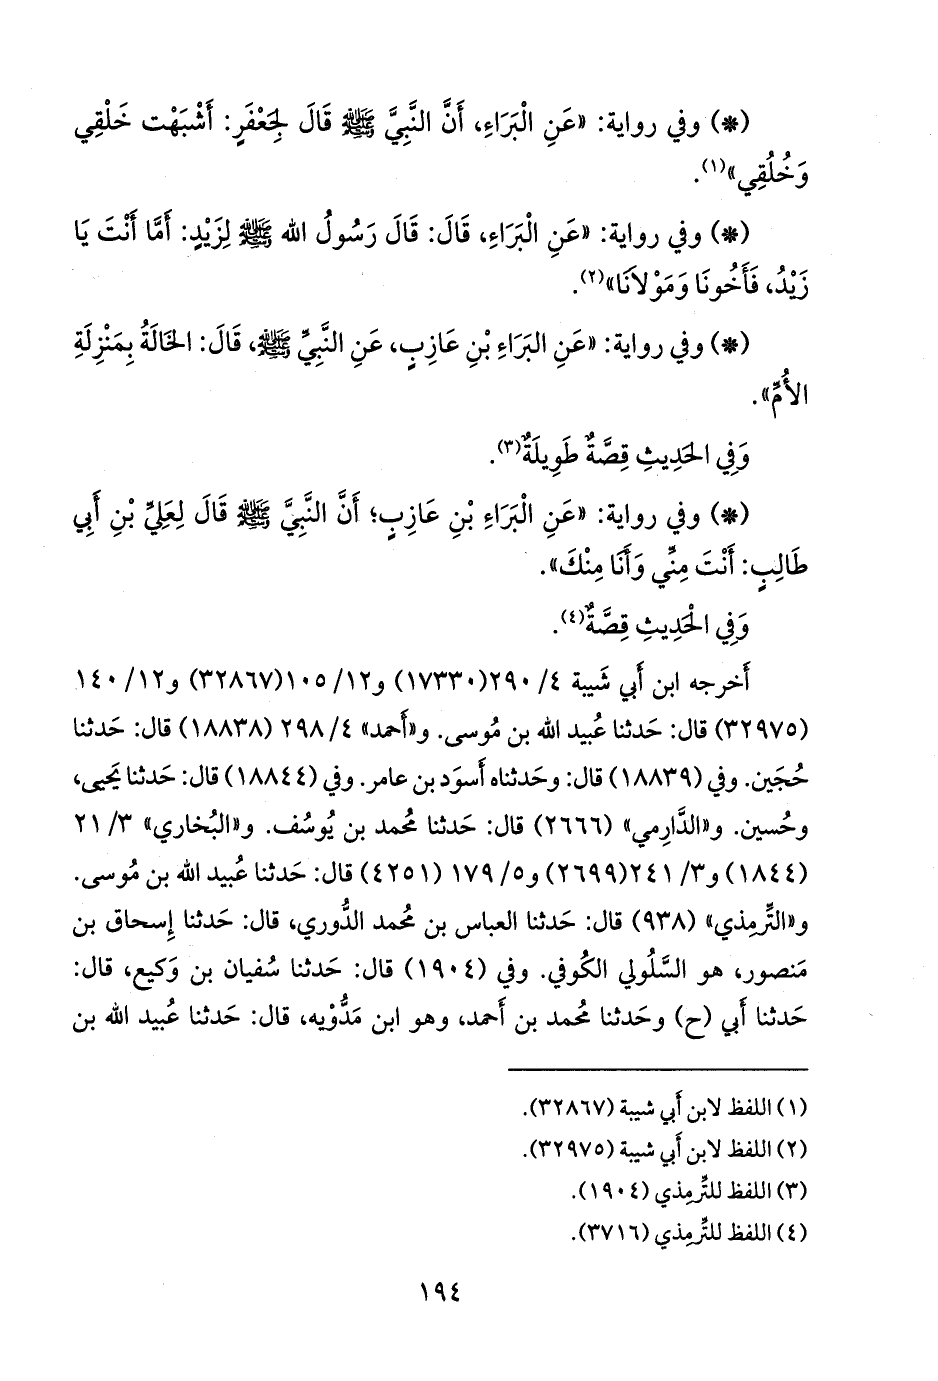 (*) وفي رواية: «عَنِ الْبَرَاءِ، أَنَّ النَّبِيَّ ﷺ قَالَ لِجَعْفَرٍ: أَشْبَهْت خَلْقِي
وَخُلُقِي»(١).
(*) وفي رواية: «عَنِ الْبَرَاءِ، قَالَ: قَالَ رَسُولُ الله ﷺ لِزَيْدٍ: أَمَّا أَنْتَ يَا
زَيْدُ، فَأَخُونَا وَمَوْلاَنَا»(٢).
(*) وفي رواية: «عَنِ البَرَاءِ بْنِ عَازِبٍ، عَنِ النَّبِيِّ ﷺ، قَالَ: الخَالَةُ بِمَنْزِلَةِ
الأُمِّ».
وَفِي الحَدِيثِ قِصَّةٌ طَوِيلَةٌ(٣).
(*) وفي رواية: «عَنِ الْبَرَاءِ بْنِ عَازِبٍ؛ أَنَّ النَّبِيَّ ﷺ قَالَ لِعَلِيِّ بْنِ أَبِي
طَالِبٍ: أَنْتَ مِنِّي وَأَنَا مِنْكَ».
وَفِي الْحَدِيثِ قِصَّةٌ(٤).
أَخرجه ابن أَبي شَيبة ٤/ ٢٩٠(١٧٣٣٠) و١٢/ ١٠٥(٣٢٨٦٧) و١٢/ ١٤٠
(٣٢٩٧٥) قال: حَدثنا عُبيد الله بن مُوسى. و«أَحمد» ٤/ ٢٩٨ (١٨٨٣٨) قال: حَدثنا
حُجَين. وفي (١٨٨٣٩) قال: وحَدثناه أَسوَد بن عامر. وفي (١٨٨٤٤) قال: حَدثنا يَحيى،
وحُسين. و«الدَّارِمي» (٢٦٦٦) قال: حَدثنا مُحمد بن يُوسُف. و«البُخاري» ٣/ ٢١
(١٨٤٤) و٣/ ٢٤١(٢٦٩٩) و٥/ ١٧٩ (٤٢٥١) قال: حَدثنا عُبيد الله بن مُوسى.
و«التِّرمِذي» (٩٣٨) قال: حَدثنا العباس بن مُحمد الدُّوري، قال: حَدثنا إِسحاق بن
مَنصور، هو السَّلُولي الكُوفي. وفي (١٩٠٤) قال: حَدثنا سُفيان بن وَكيع، قال:
حَدثنا أَبي (ح) وحَدثنا مُحمد بن أَحمد، وهو ابن مَدُّوْيه، قال: حَدثنا عُبيد الله بن
(١) اللفظ لابن أَبي شيبة (٣٢٨٦٧).
(٢) اللفظ لابن أَبي شيبة (٣٢٩٧٥).
(٣) اللفظ للتِّرمِذي (١٩٠٤).
(٤) اللفظ للتِّرمِذي (٣٧١٦).
١٩٤